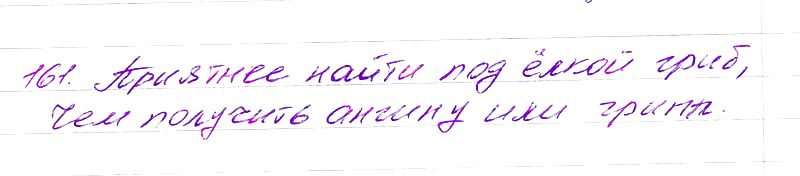 161. Приятнее найти под ёлкой гриб,
Чем получить ангину или грипп.